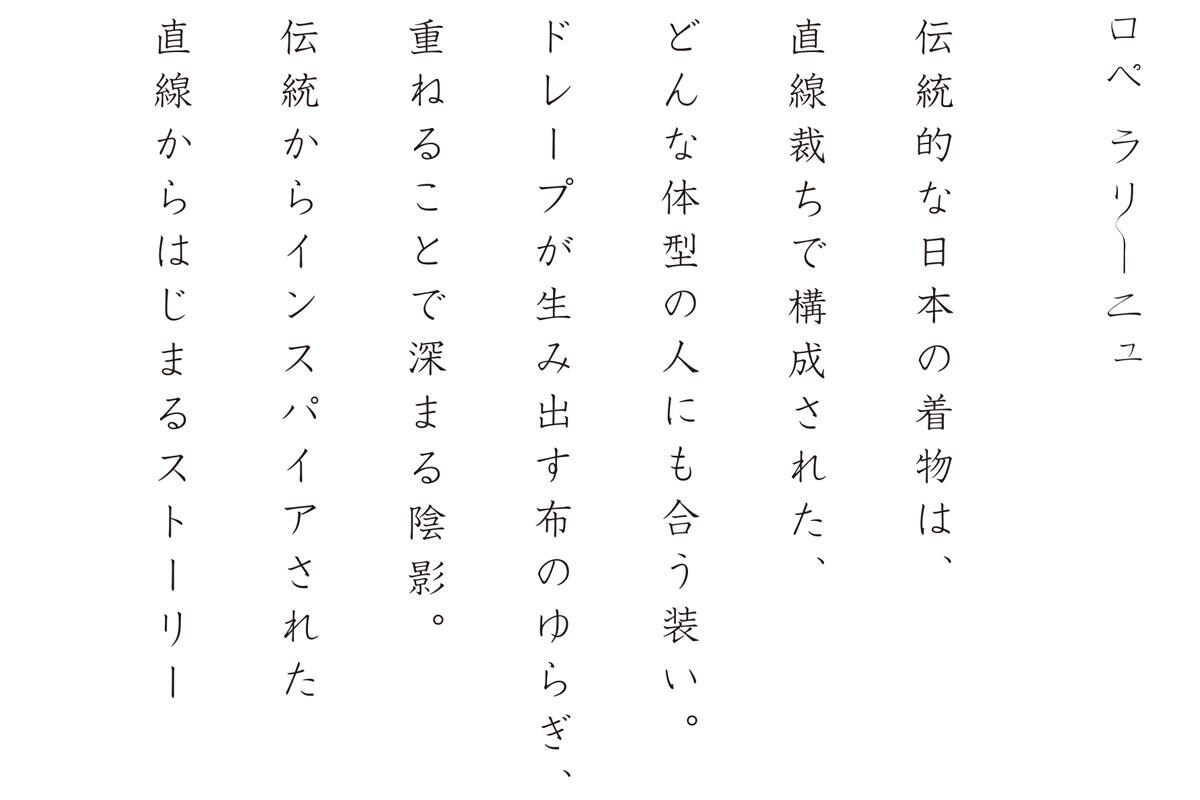 ロペ ラリーニュ
伝統的な日本の着物は、
直線裁ちで構成された、
どんな体型の人にも合う装い。
ドレープが生み出す布のゆらぎ、
重ねることで深まる陰影。
伝統からインスパイアされた
直線からはじまるストーリー